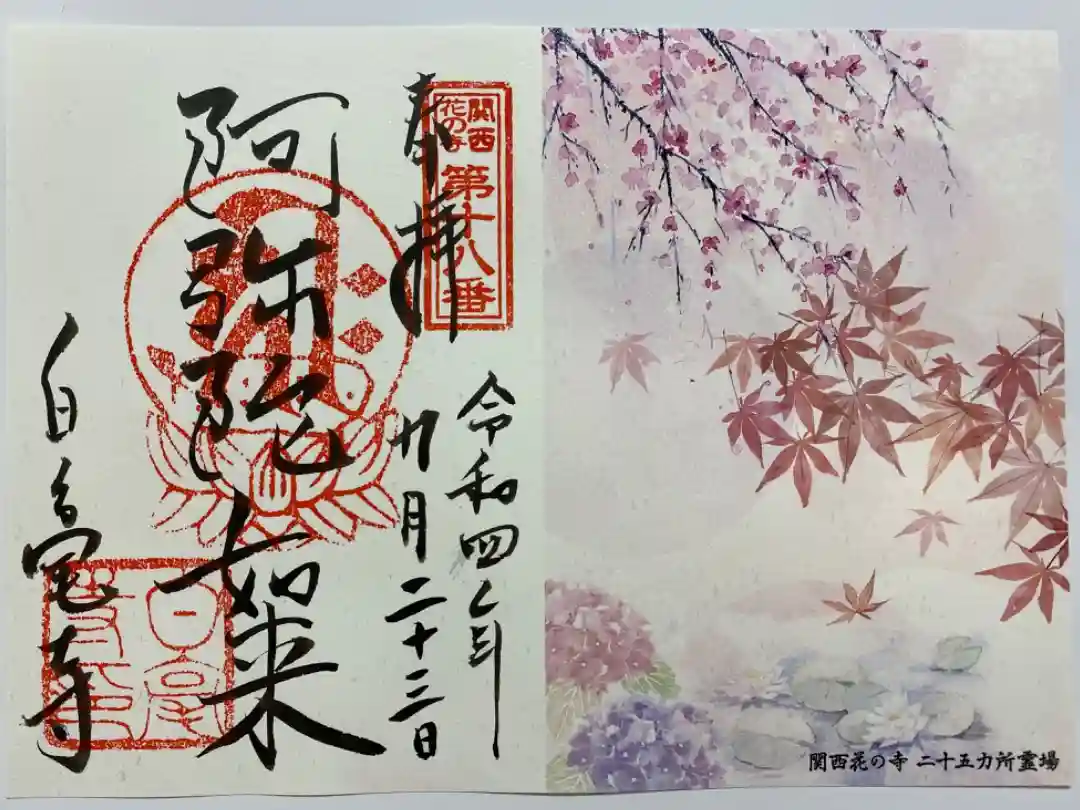 奉拝
関西
花の寺
第十八番
令和四年
九月二十三日
阿弥陀如来
白毫寺
関西花の寺 二十五カ所霊場